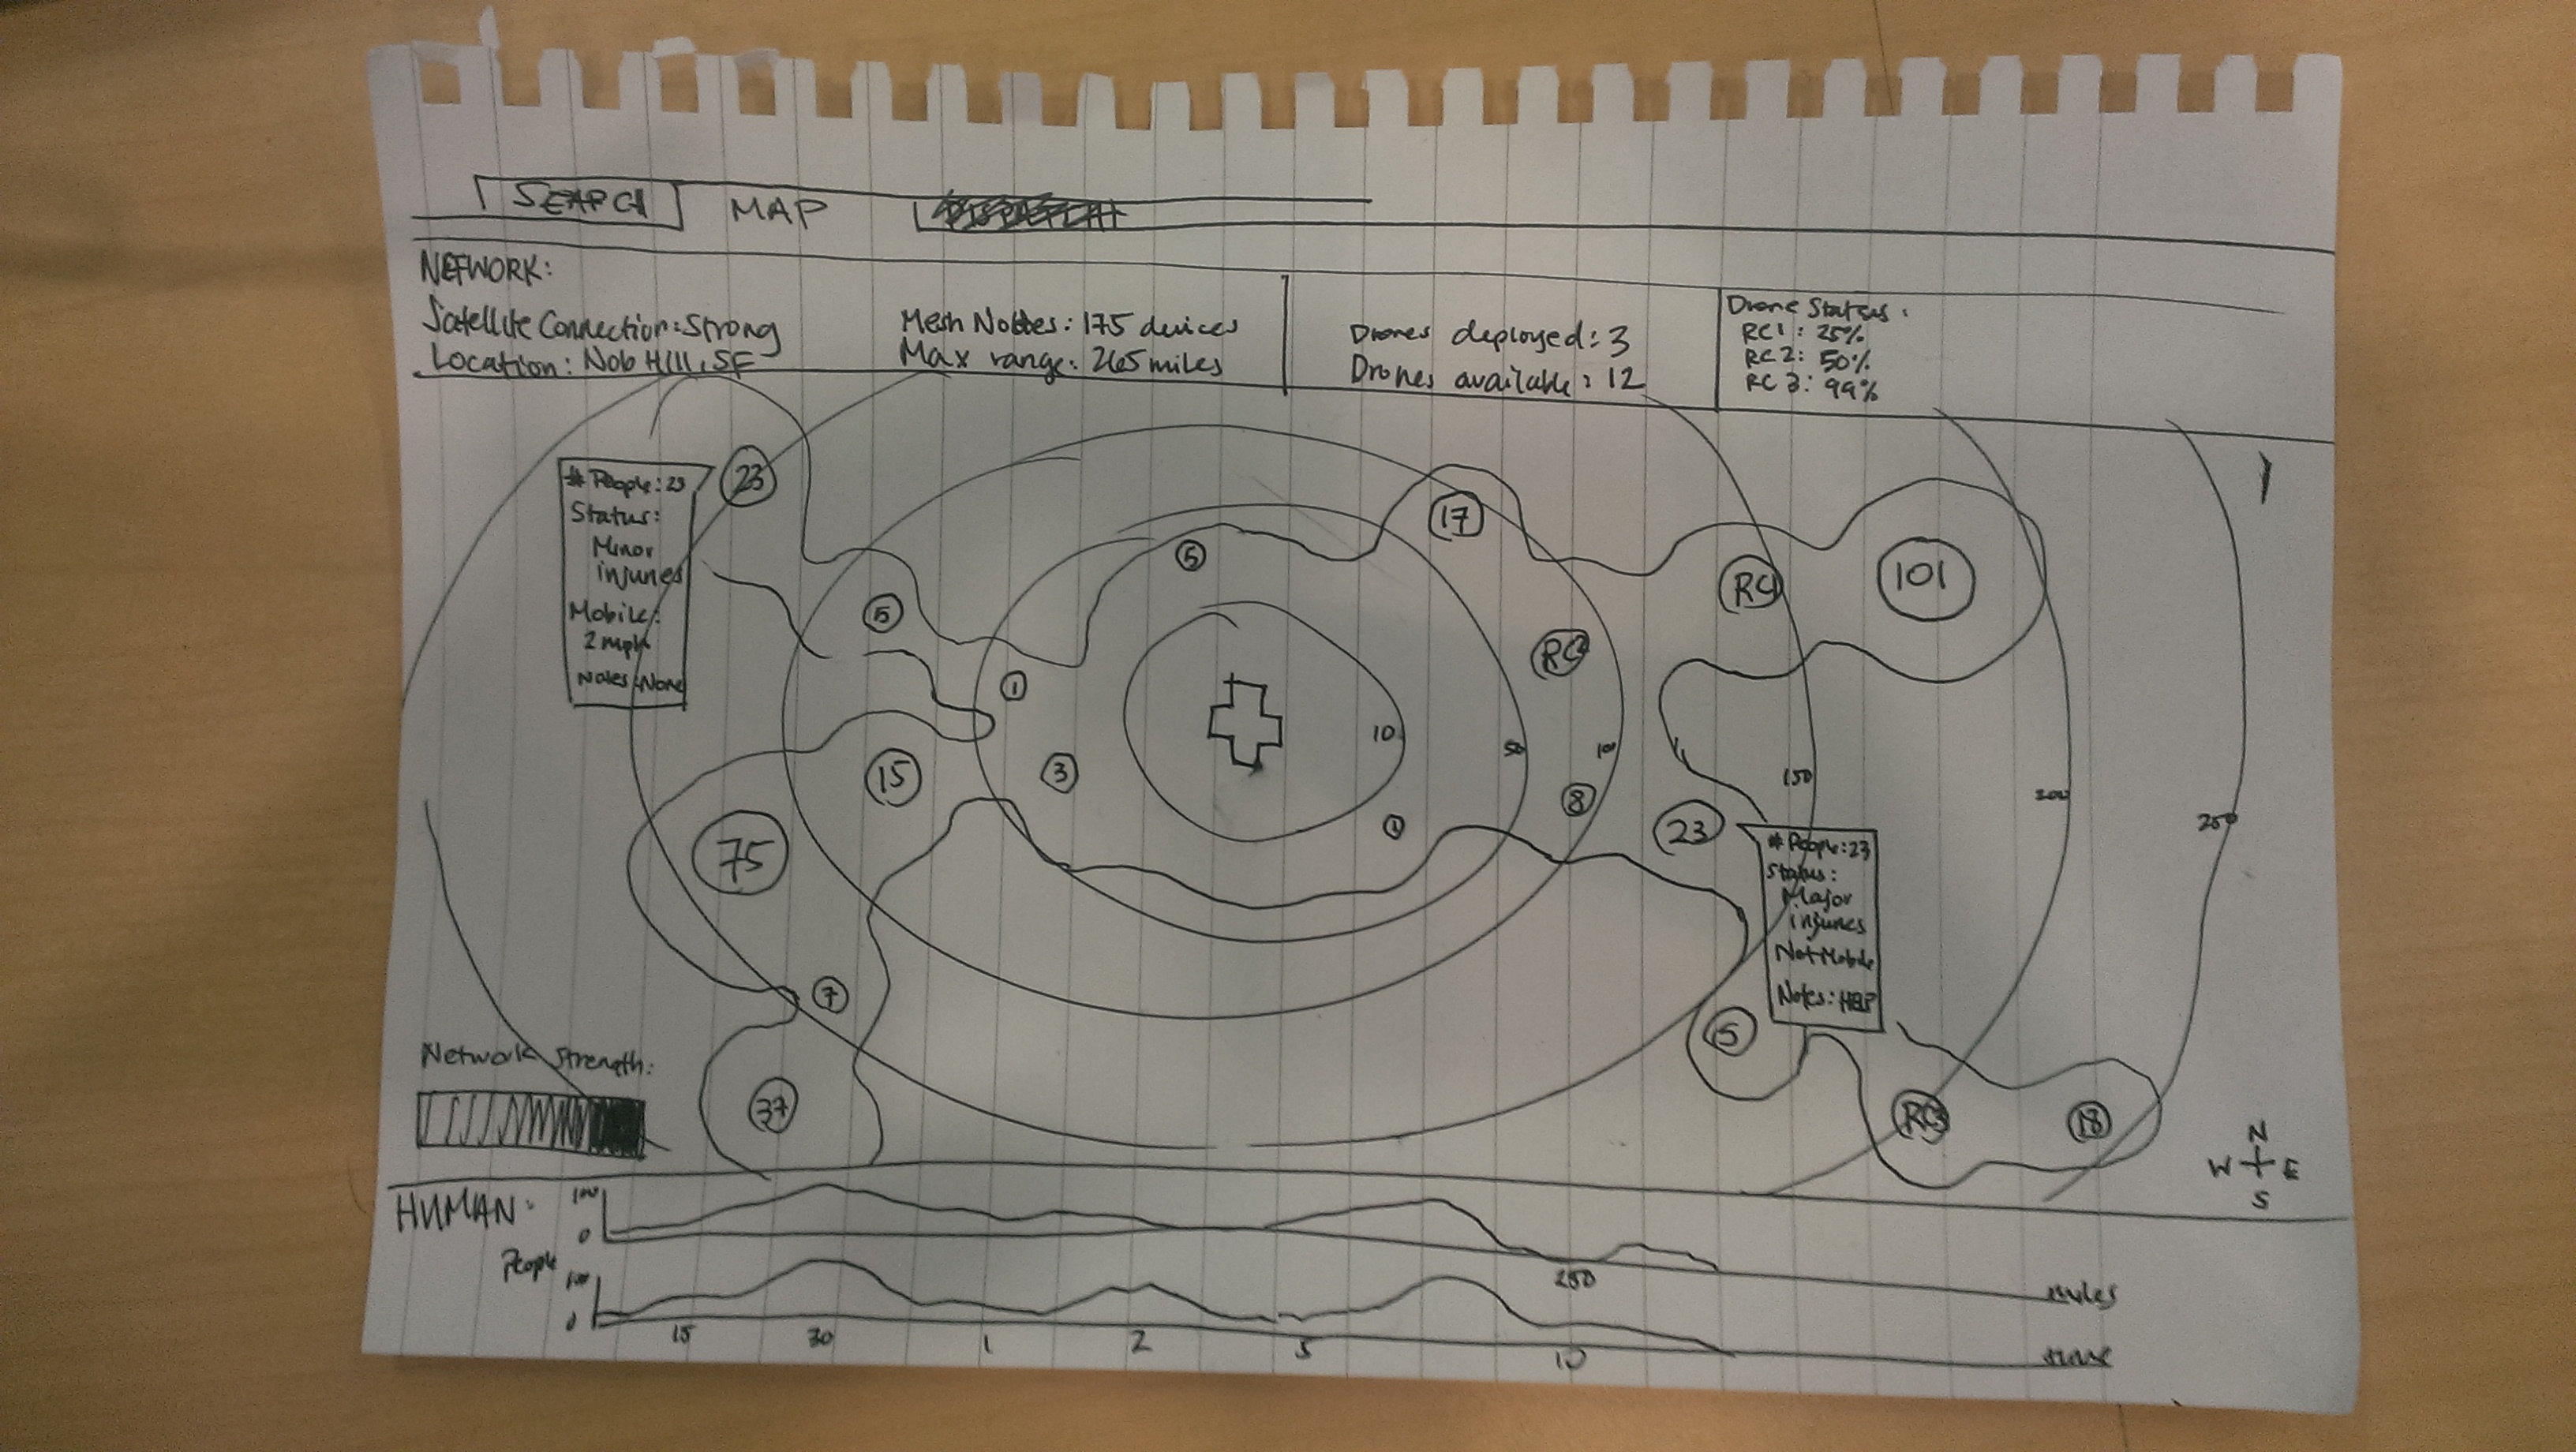 SEARCH MAP
NETWORK:
Satellite Connection: Strong
Location: Nob Hill, SF
Mesh Nodes: 175 devices
Max range: 265 miles
Drones deployed: 3
Drones available: 12
Drone Status:
RC1: 25%
RC2: 50%
RC3: 99%
23
# People: 23
Status:
Minor
injuries
Mobile:
2 mph
Notes: None
17
5
RC1
101
5
RC2
1
10
50
100
150
200
250
3
15
8
1
23
75
# People: 23
Status:
Major
injuries
Not Mobile
Notes: HELP
7
5
Network Strength:
37
RC3
18
N
W E
S
HUMAN:
100
0
250
miles
People
100
0
15 30 1 2 5 10